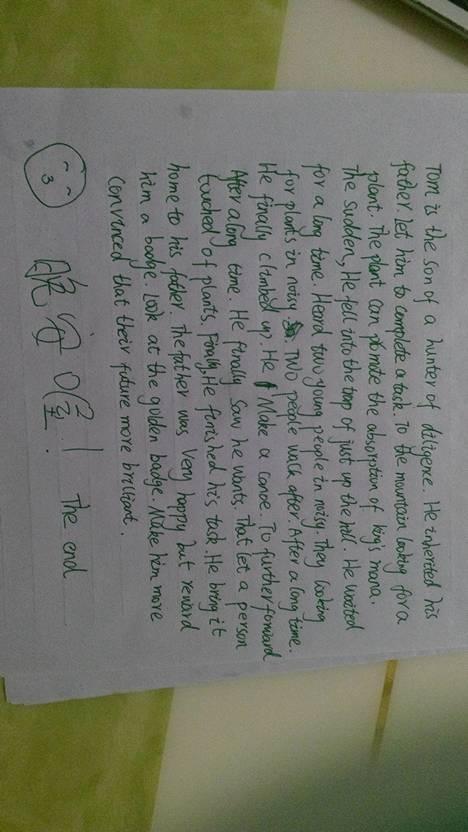 Tom is the son of a hunter of diligence. He inherited his
father. Let him to complete a task. To the mountain looking for a
plant. The plant can promote the absorption of king's mana.
the sudden, He fell into the trap of just up the hill. He waited
for a long time. Heard two young people in noisy. they looking
for plants in noisy. Two people walk after. After a long time.
He finally climbed up. He Make a canoe. To further forward
After a long time. He finally Saw he wants. That let a person
touched of plants, Finally, He finished his task. He bring it
home to his father. The father was Very happy but reward
him a badge. Look at the golden badge. Make him more
convinced that their future more brilliant.
The end